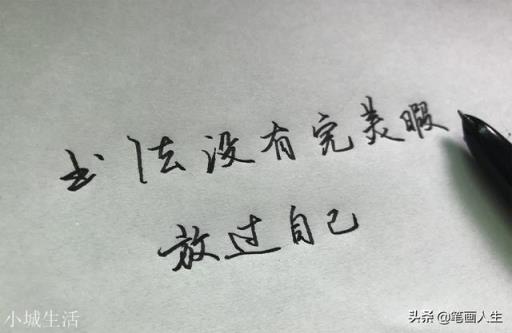 书法没有完美暇
放过自己
小城生活
头条@笔画人生